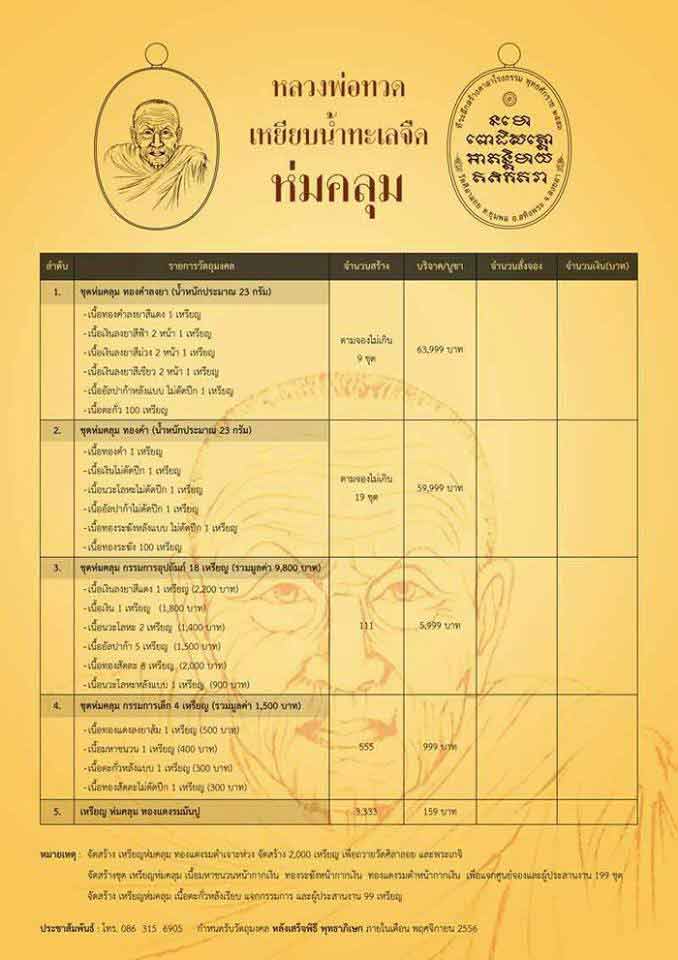 หลวงพ่อทวด
เหยียบน้ำทะเลจืด
ห่มคลุม
ที่ระลึกสร้างศาลาโรงธรรม พุทธศักราช ๒๕๕๖
วัดศิลาลอย ต.ชุมพล อ.สทิงพระ จ.สงขลา
ลำดับ รายการวัตถุมงคล จำนวนสร้าง บริจาค/บูชา จำนวนสั่งจอง จำนวนเงิน(บาท)
1. ชุดห่มคลุม ทองคำลงยา (น้ำหนักประมาณ 23 กรัม)
-เนื้อทองคำลงยาสีแดง 1 เหรียญ
-เนื้อเงินลงยาสีฟ้า 2 หน้า 1 เหรียญ
-เนื้อเงินลงยาสีม่วง 2 หน้า 1 เหรียญ
-เนื้อเงินลงยาสีเขียว 2 หน้า 1 เหรียญ
-เนื้ออัลปาก้าหลังแบบ ไม่ตัดปีก 1 เหรียญ
-เนื้อตะกั่ว 100 เหรียญ
ตามจองไม่เกิน
9 ชุด
63,999 บาท
2. ชุดห่มคลุม ทองคำ (น้ำหนักประมาณ 23 กรัม)
-เนื้อทองคำ 1 เหรียญ
-เนื้อเงินไม่ตัดปีก 1 เหรียญ
-เนื้อนวะโลหะไม่ตัดปีก 1 เหรียญ
-เนื้ออัลปาก้าไม่ตัดปีก 1 เหรียญ
-เนื้อทองระฆังหลังแบบ ไม่ตัดปีก 1 เหรียญ
-เนื้อทองระฆัง 100 เหรียญ
ตามจองไม่เกิน
19 ชุด
59,999 บาท
3. ชุดห่มคลุม กรรมการอุปถัมภ์ 18 เหรียญ (รวมมูลค่า 9,800 บาท)
-เนื้อเงินลงยาสีแดง 1 เหรียญ (2,200 บาท)
-เนื้อเงิน 1 เหรียญ (1,800 บาท)
-เนื้อนวะโลหะ 2 เหรียญ (1,400 บาท)
-เนื้ออัลปาก้า 5 เหรียญ (1,500 บาท)
-เนื้อทองสัตตะ 8 เหรียญ (2,000 บาท)
-เนื้อนวะโลหะหลังแบบ 1 เหรียญ (900 บาท)
111
5,999 บาท
4. ชุดห่มคลุม กรรมการเล็ก 4 เหรียญ (รวมมูลค่า 1,500 บาท)
-เนื้อทองแดงลงยาส้ม 1 เหรียญ (500 บาท)
-เนื้อมหาชนวน 1 เหรียญ (400 บาท)
-เนื้อตะกั่วหลังแบบ 1 เหรียญ (300 บาท)
-เนื้อทองสัตตะไม่ตัดปีก 1 เหรียญ (300 บาท)
555
999 บาท
5. เหรียญ ห่มคลุม ทองแดงรมมันปู 3,333 159 บาท
หมายเหตุ : จัดสร้าง เหรียญห่มคลุม ทองแดงรมดำเจาะห่วง จัดสร้าง 2,000 เหรียญ เพื่อถวายวัดศิลาลอย และพระเกจิ
จัดสร้างชุด เหรียญห่มคลุม เนื้อมหาชนวนหน้ากากเงิน ทองระฆังหน้ากากเงิน ทองแดงรมดำหน้ากากเงิน เพื่อแจกศูนย์จองและผู้ประสานงาน 199 ชุด
จัดสร้าง เหรียญห่มคลุม เนื้อตะกั่วหลังเรียบ แจกกรรมการ และผู้ประสานงาน 99 เหรียญ
ประชาสัมพันธ์ : โทร. 086 315 6905 กำหนดรับวัตถุมงคล หลังเสร็จพิธี พุทธาภิเษก ภายในเดือน พฤศจิกายน 2556